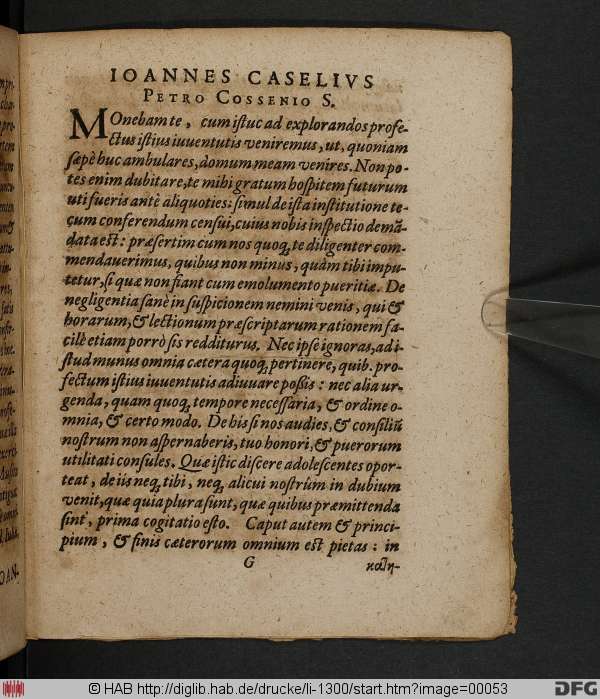 IOANNES CASELIVS
PETRO COSSENIO S.
MOnebam te, cum istuc ad explorandos profe-
ctus istius iuuentutis veniremus, ut, quoniam
sæpè huc ambulares, domum meam venires. Non po-
tes enim dubitare, te mihi gratum hospitem futurum
uti fueris antè aliquoties: simul de ista institutione te-
cum conferendum censui, cuius nobis inspectio demã-
data est: præsertim cum nos quoq; te diligenter com-
mendauerimus, quibus non minus, quàm tibi impu-
tetur, si quæ non fiant cum emolumento pueritiæ. De
negligentia sanè in suspicionem nemini venis, qui &
horarum, & lectionum præscriptarum rationem fa-
cilè etiam porrò sis redditurus. Nec ipse ignoras, ad i-
stud munus omnia cætera quoq; pertinere, quib. pro-
fectum istius iuuentutis adiuuare poßis: nec alia ur-
genda, quam quoq; tempore necessaria, & ordine o-
mnia, & certo modo. De his si nos audies, & consiliũ
nostrum non aspernaberis, tuo honori, & puerorum
utilitati consules. Quæ istic discere adolescentes opor-
teat, de iis neq; tibi, neq; alicui nostrûm in dubium
venit, quæ quia plura sunt, quæ quibus præmittenda
sint, prima cogitatio esto. Caput autem & princi-
pium, & finis cæterorum omnium est pietas: in
G
OAN-
© HAB http://diglib.hab.de/drucke/li-1300/start.htm?image=00053
DFG